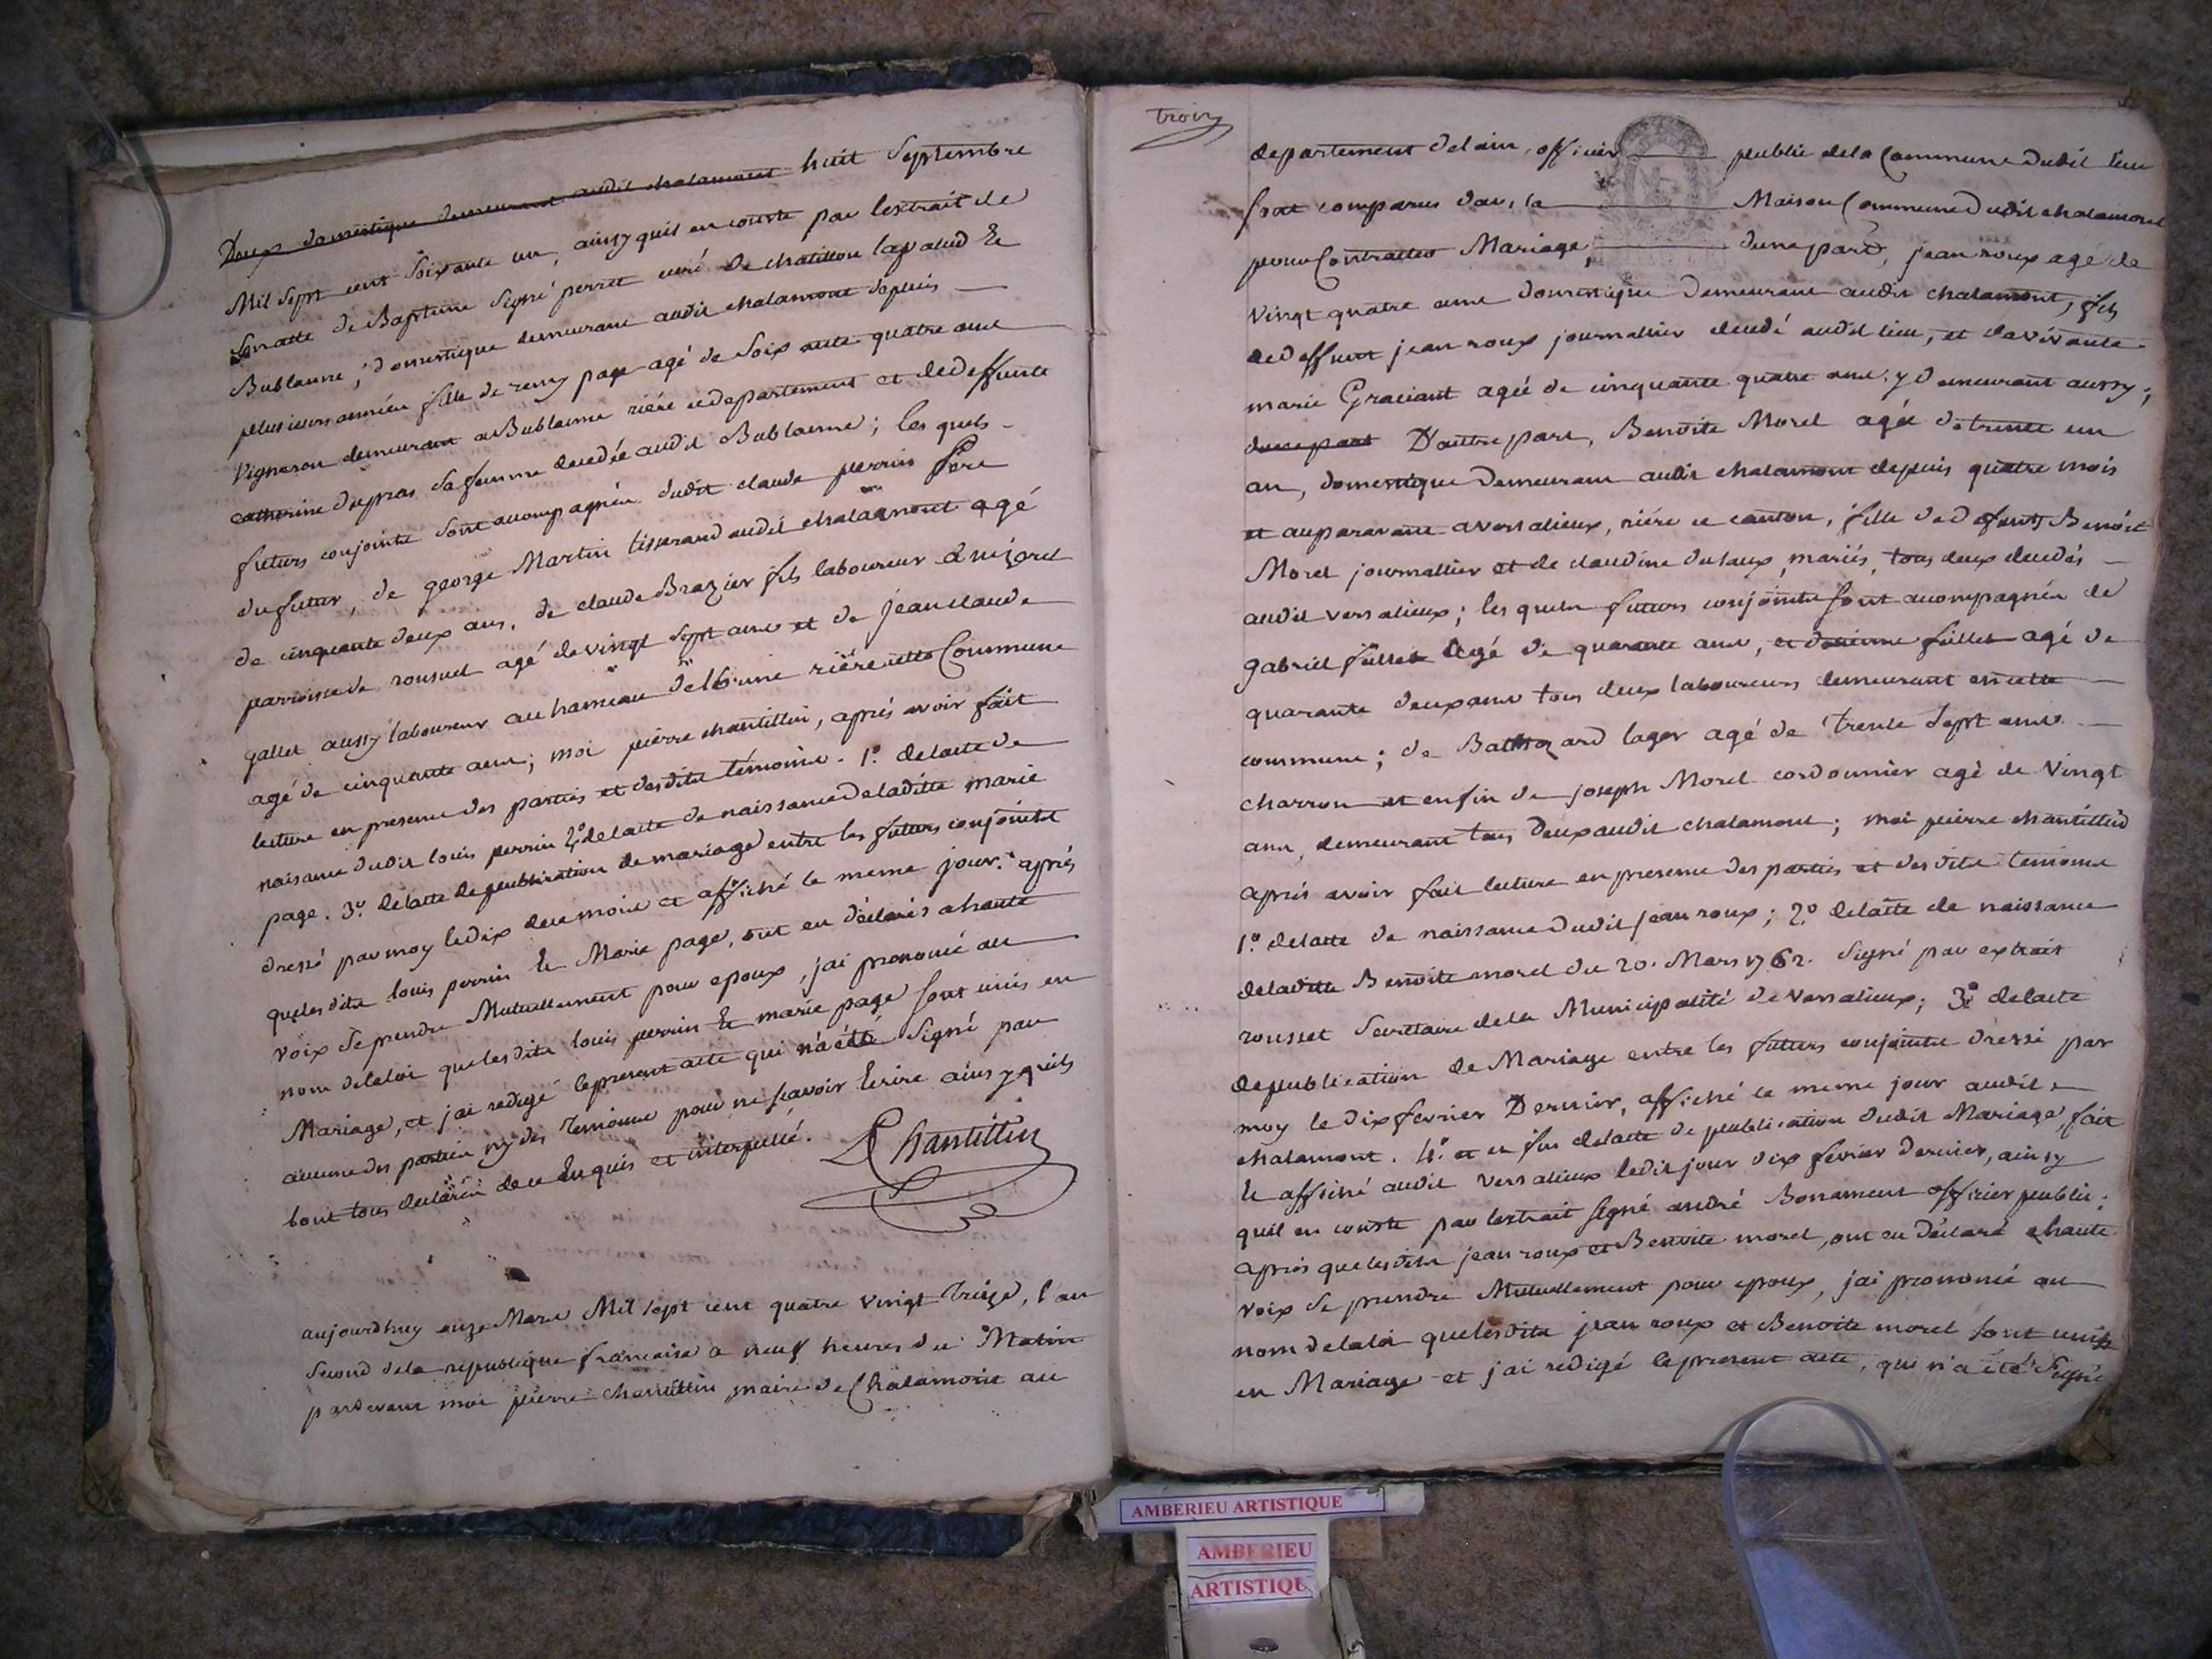 Deux domestique demeurant audit chalamont huit Septembre
Mil sept cent soixante un, ainsy quil en conste par lextrait de
Sonatte de Baptême signé perret curé de chatillon lapalud Et
Bublanne, domestique demeurant audit chalamont depuis
plusieurs année fille de remy page agé de Soixante quatre ans
Vigneron demeurant a Bublanne riére ce departement et de deffunte
catherine dupras sa femme decedée audit Bublanne ; les quels
futurs conjoints sont accompagnés dudit claude perrin Pere
du futur, de george Martin tisserand audit chalamont agé
de cinquante deux ans, de claude Brazier fils laboureur
parroisse de ronsuel agé de vingt sept ans et de jean claude
gallet aussy laboureur au hameau de riére cette Commune
agé de cinquante ans ; moi pierre chantillin, aprés avoir fait
lecture en presence des parties et desdits témoins. 1º delacte de
naissance dudit louis perrin 2º delacte de naissance de laditte marie
page. 3º delacte de publication de mariage entre les futurs conjoints
dressé par moy le dix de ce mois et affiché le meme jour. aprés
que lesdits louis perrin Et Marie page, ont eu déclarés a haute
voix se prendre Mutuellement pour epoux, jai prononcé au
nom de la loi que lesdits louis perrin Et marie page sont unis en
Mariage, et jai redigé le present acte qui n'a été Signé par
aucune des parties ny des Temoins pour ne scavoir Ecrire ainsy quils
lont tous declarés de ce Enquis et interpellé. P Chantillin
aujourdhuy onze Mars Mil sept cent quatre vingt treize, l'an
second de la republique francaise a neuf heures du Matin
pardevant moi pierre chantillin maire de Chalamont au
trois
departement delain, officier public de la Commune dudit lieu
sont comparus dans la Maison Commune dudit chalamont
pour Contracter Mariage, dune part, jean roux agé de
vingt quatre ans domestique demeurant audit chalamont, fils
de deffunt jean roux journallier decedé audit lieu, et de vivante
marie Graciant agée de cinquante quatre ans y demeurant aussy ;
dune part D'autre part, Benoite Morel agée de trente un
an, domestique demeurant audit chalamont depuis quatre mois
et auparavant a versalieux, riére ce canton, fille de defunt Benoit
Morel journallier et de claudine dulaux, mariés, tous deux decedés
audit versalieux ; les quels futurs conjoints sont accompagnés de
gabriel füllet agé de quarante ans, et füllet agé de
quarante deux ans tous deux laboureurs demeurant en cette
commune ; de Balthazard lager agé de trente sept ans
charron et enfin de joseph Morel cordonnier agé de Vingt
ans, demeurant tous deux audit chalamont ; moi pierre chantillin
aprés avoir fait lecture en presence des parties et desdits temoins
1º delacte de naissance dudit jean roux ; 2º delacte de naissance
de laditte Benoite morel du 20. Mars 1762. Signé par extrait
rousset Secretaire de la Municipalité de Versalieux ; 3º delacte
de publication de Mariage entre les futurs conjoints dressé par
moy le dix fevrier Dernier, affiché le meme jour audit
chalamont. 4º et en fin delacte de publication dudit Mariage, fait
Et affiché audit versalieux ledit jour dix février dernier, ainsy
quil en conste par lextrait signé andré Bonament officier public ;
aprés que lesdits jean roux et Benoite morel, ont eu déclaré a haute
voix se prendre Mutuellement pour epoux, jai prononcé au
nom de la loi que lesdits jean roux et Benoite morel sont unis
en Mariage et jai redigé le present acte, qui n'a été Signé
AMBERIEU ARTISTIQUE
AMBERIEU
ARTISTIQU